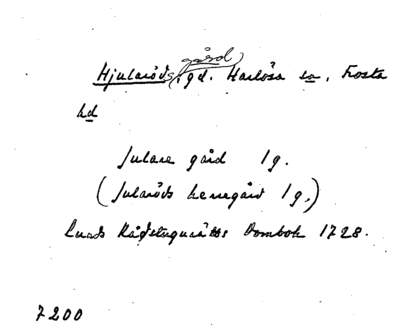 gård
Hjularöds, gd. Harlösa sn, Frosta
hd
Julare gård 1g.
(Jularöds herregård 1g.)
Lunds Rådstugurätts Dombok 1728.
7200